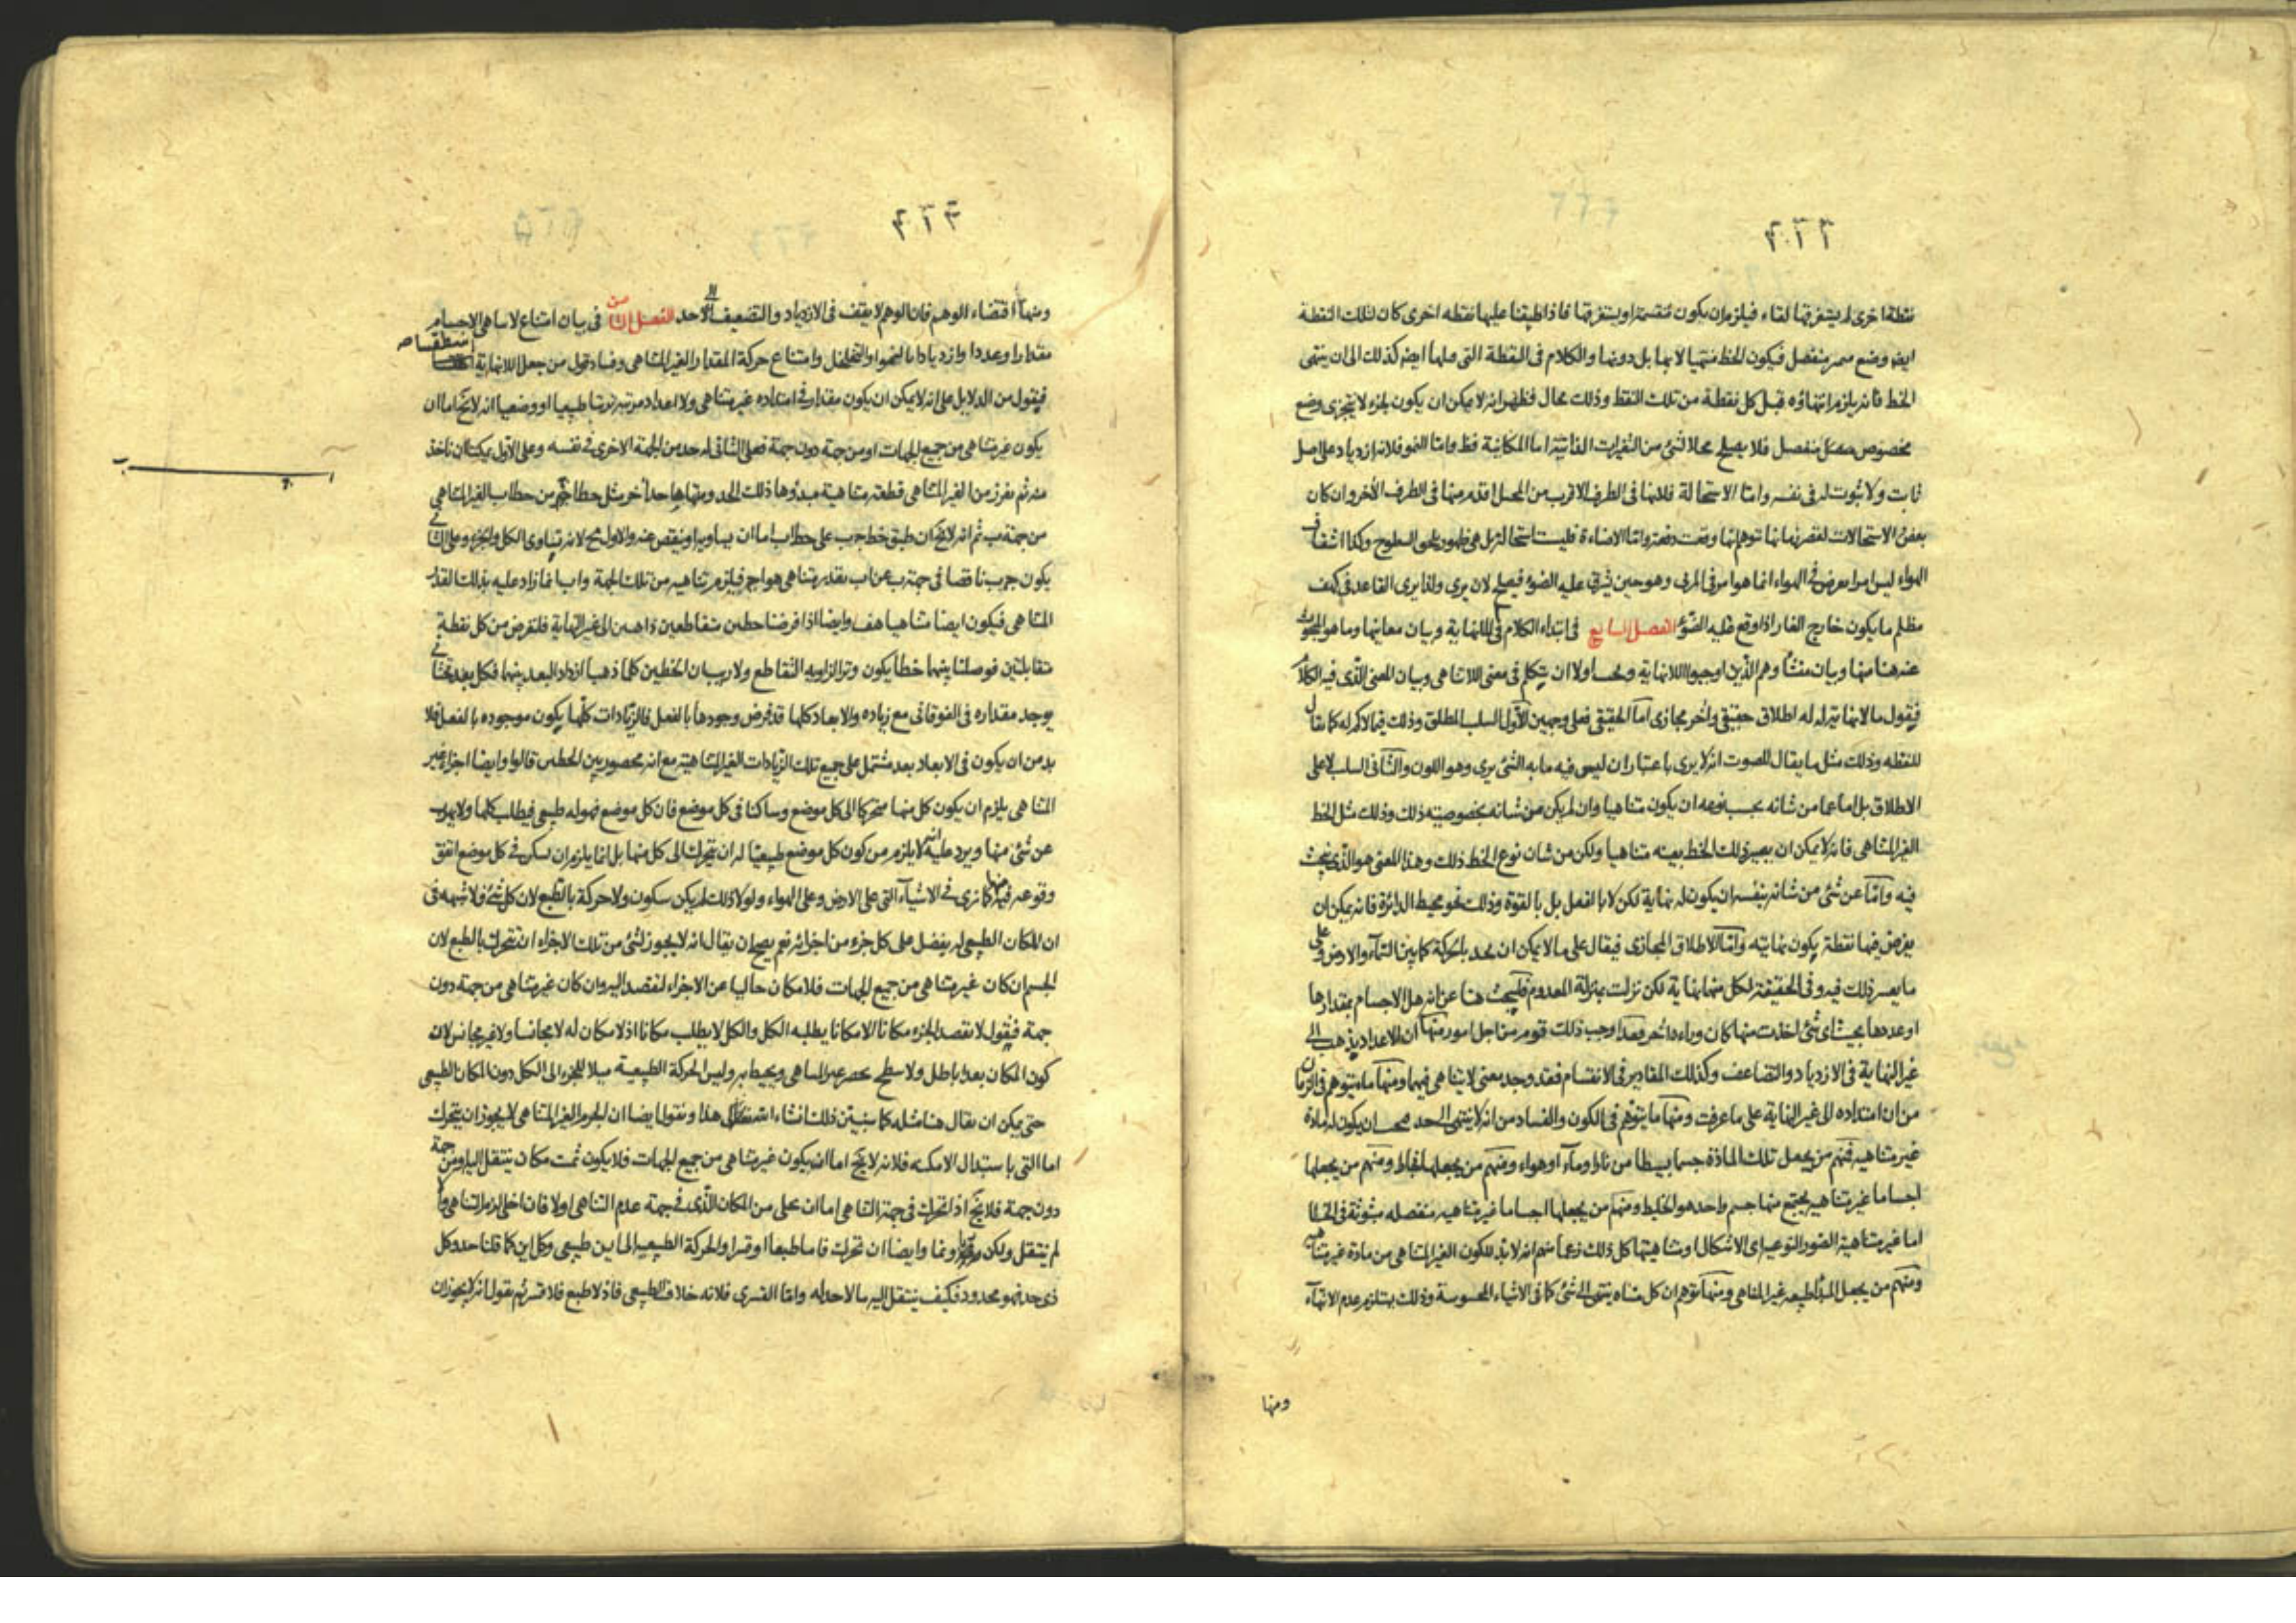 نقطة اخرى لم يستغرقها لقاء فيلزم ان يكون منقسمة او يستغرقها فاذا طبقنا عليها نقطه اخرى كان لتلك النقطة
ايضا وضع منفصل فيكون الخط منتهيا لا بها بل دونها والكلام فى النقطة التى كذلك الى ان ينتهى
الخط فانه يلزم انتهاؤه قبل كل نقطة من تلك النقط وذلك محال فظهر انه لا يمكن ان يكون لجزء لا يتجزى وضع
مخصوص منفصل فلا يصلح محلا لشئ من التغيرات الذاتية اما المكانية فظ واما النمو فلانه ازدياد على اصل
ثابت ولا ثبوت له فى نفسه واما الاستحالة فلانها فى الطرف الاقرب من المحيل اقدم منها فى الطرف الأخر وان كان
بعض الاستحالات لقصر زمانها توهم انها وقعت دفعة واما الاضاءة فليست استحالة بل هى ظهور السطوح وكذا اشفاف
الهواء ليس امرا يعرض فى الهواء انما هو امر فى المرئى وهو حين يشرق عليه الضوء فيصلح لان يرى ولذا يرى القاعد فى كهف
مظلم ما يكون خارج الغار اذا وقع عليه الضوء الفصل السابع فى ابتداء الكلام فى اللانهاية وبيان معانيها وما هو المبحوث
عنه هنا منها وبيان منشأ وهم الذين اوجبوا اللانهاية ويجب اولا ان يتكلم فى معنى اللاتناهى وبيان المعنى الذى فيه الكلام
فيقول ما لا نهاية له له اطلاق حقيقى واخر مجازى اما الحقيقى فعلى وجهين الاول السلب المطلق وذلك فيما لا كم له كما يقال
للنقطه وذلك مثل ما يقال للصوت انه لا يرى باعتبار ان ليس فيه ما به الشئ يرى وهو اللون والثانى السلب لا على
الاطلاق بل اما عما من شانه بحسب نوعه ان يكون متناهيا وان لم يكن من شانه بخصوصيته ذلك وذلك مثل الخط
الغير المتناهى فانه لا يمكن ان يصير ذلك الخط بعينه متناهيا ولكن من شان نوع الخط ذلك وهذا المعنى هو الذى نبحث
فيه واما عن شئ من شانه بنفسه ان يكون له نهاية لكن لا بالفعل بل بالقوة وذلك نحو محيط الدائرة فانه يمكن ان
يفرض فيها نقطة يكون نهايته واما الاطلاق المجازى فيقال على ما لا يمكن ان يحد بالحركة كما بين السماء والارض وعلى
ما يعسر ذلك فيه وفى الحقيقة لكل منهما نهاية لكن نزلت منزلة المعدوم فليبحث هنا عن انه هل الاجسام بمقدارها
او عددها بحيث اى شئ اخذت منها كان وراءه اخر فقد اوجب ذلك قوم من اجل امور منها ان الاعداد يذهب الى
غير النهاية فى الازدياد والتضاعف وكذلك المقادير فى الانقسام فقد وجد معنى لا يتناهى فيهما ومنها ما يتوهم فى الزمان
من ان امتداده الى غير النهاية على ما عرفت ومنها ما يتوهم فى الكون والفساد من انه لا ينتهى الى حد فيجب ان يكون له مادة
غير متناهيه فمنهم من يجعل تلك المادة جسما بسيطا من نار او ماء او هواء ومنهم من يجعلها الخليط ومنهم من يجعلها
اجساما غير متناهيه يجتمع منها جسم واحد هو الخليط ومنهم من يجعلها اجساما غير متناهيه منفصله مبثوثة فى الخلا
اما غير متناهية الصور النوعيه اى الاشكال او متناهيتها كل ذلك زعما منهم انه لا بد للكون الغير المتناهى من مادة غير متناهيه
ومنهم من يجعل المبدأ طبيعه غير المتناهى ومنها توهم ان كل متناه ينتهى الى شئ كما فى الاشياء المحسوسة وذلك يستلزم عدم الانتهاء
ومنها
ومنها اقتضاء الوهم فان الوهم لا يقف فى الازدياد والتضعيف الى حد الفصل الثامن فى بيان امتناع لا تناهى الاجسام
مقدارا وعددا وازديادا بالنمو والتخلخل وامتناع حركة المقدار الغير المتناهى وفساد قول من جعل اللانهاية اسطقسا
فيقول من الدلايل على انه لا يمكن ان يكون مقدار فى امتداده غير متناهى ولا اعداد مرتبه ترتبا طبيعيا او وضعيا انه لا يخ اما ان
يكون غير متناهى من جميع الجهات او من جهة دون جهة فعلى الثانى له حد من الجهة الاخرى فى نفسه وعلى الاول يمكننا ان ناخذ
منه ثم نفرز من الغير المتناهى قطعة متناهية مبدؤها ذلك الحد ومنتهاها حد آخر مثل خط اج من خط اب الغير المتناهى
من جهة ب ثم انه لا يخ ان طبق خط جب على خط اب اما ان يساويه او ينقص عنه والاول مح لانه تساوى الكل والجزء وعلى الثانى
يكون جب ناقصا فى جهة ب عن اب بقدر متناهى هو اج فيلزم تناهيه من تلك الجهة واب انما زاد عليه بذلك القدر
المتناهى فيكون ايضا متناهيا هف وايضا اذا فرضنا خطين متقاطعين ذاهبين الى غير النهاية فلنفرض من كل نقطة
متقابلتين فوصلنا بينهما خطا يكون وتر الزاويه التقاطع ولا ريب ان الخطين كلما ذهبا ازداد البعد بينهما فكل بعد تحتانى
يوجد مقداره فى الفوقانى مع زياده والابعاد كلها قد فرض وجودها بالفعل فالزيادات كلها يكون موجوده بالفعل فلا
بد من ان يكون فى الابعاد بعد مشتمل على جميع تلك الزيادات الغير المتناهية مع انه محصور بين الخطين قالوا وايضا اجزاء غير
المتناهى يلزم ان يكون كل منها متحركا الى كل موضع وساكنا فى كل موضع فان كل موضع فهو له طبيعى فيطلب كلها ولا يهرب
عن شئ منها ويرد عليه انه لا يلزم من كون كل موضع طبيعيا له ان يتحرك الى كل منها بل انما يلزم ان يسكن فى كل موضع اتفق
وقوعه فيه منها كما نرى فى الاشياء التى على الارض وعلى الهواء ولولا ذلك لم يكن سكون ولا حركة بالطبع لان كل شئ فلا شبهه فى
ان المكان الطبيعى له يفضل على كل جزء من اجزائه نعم يصح ان يقال انه لا يجوز لشئ من تلك الاجزاء ان تتحرك بالطبع لان
الجسم ان كان غير متناهى من جميع الجهات فلا مكان خاليا عن الاجزاء لتقصد اليه وان كان غير متناهى من جهة دون
جهة فيقول لا يقصد الجزء مكانا الا مكانا يطلبه الكل والكل لا يطلب مكانا اذ لا مكان له لا مجانسا ولا غير مجانس لان
كون المكان بعدا باطل ولا سطح يحصر غير المتناهى ويحيط به وليس الحركة الطبيعية ميلا للجزء الى الكل دون المكان الطبيعى
حتى يمكن ان يقال هنا مثله كما سنبين ذلك انشاء الله تعالى هذا ونقول ايضا ان الجرم الغير المتناهى لا يجوز ان يتحرك
اما التى باستبدال الامكنه فلانه لا يخ اما ان يكون غير متناهى من جميع الجهات فلا يكون ثمت مكان ينتقل اليه او من جهة
دون جهة فلا يخ اذا تحرك فى جهة التناهى اما ان يخلى من المكان الذى فى جهة عدم التناهى اولا فان اخلى لزم التناهى والا
لم ينتقل ولكن ونما وايضا ان تحرك فاما طبعا او قسرا والحركة الطبيعيه الى اين طبيعى وكل اين كما قلنا حد وكل
ذى حد فهو محدود فكيف ينتقل اليه ما لا حد له واما القسرى فلانه خلاف الطبيعى فاذ لا طبع فلا قسر ثم نقول انه لا يجوز ان
ا ج ب